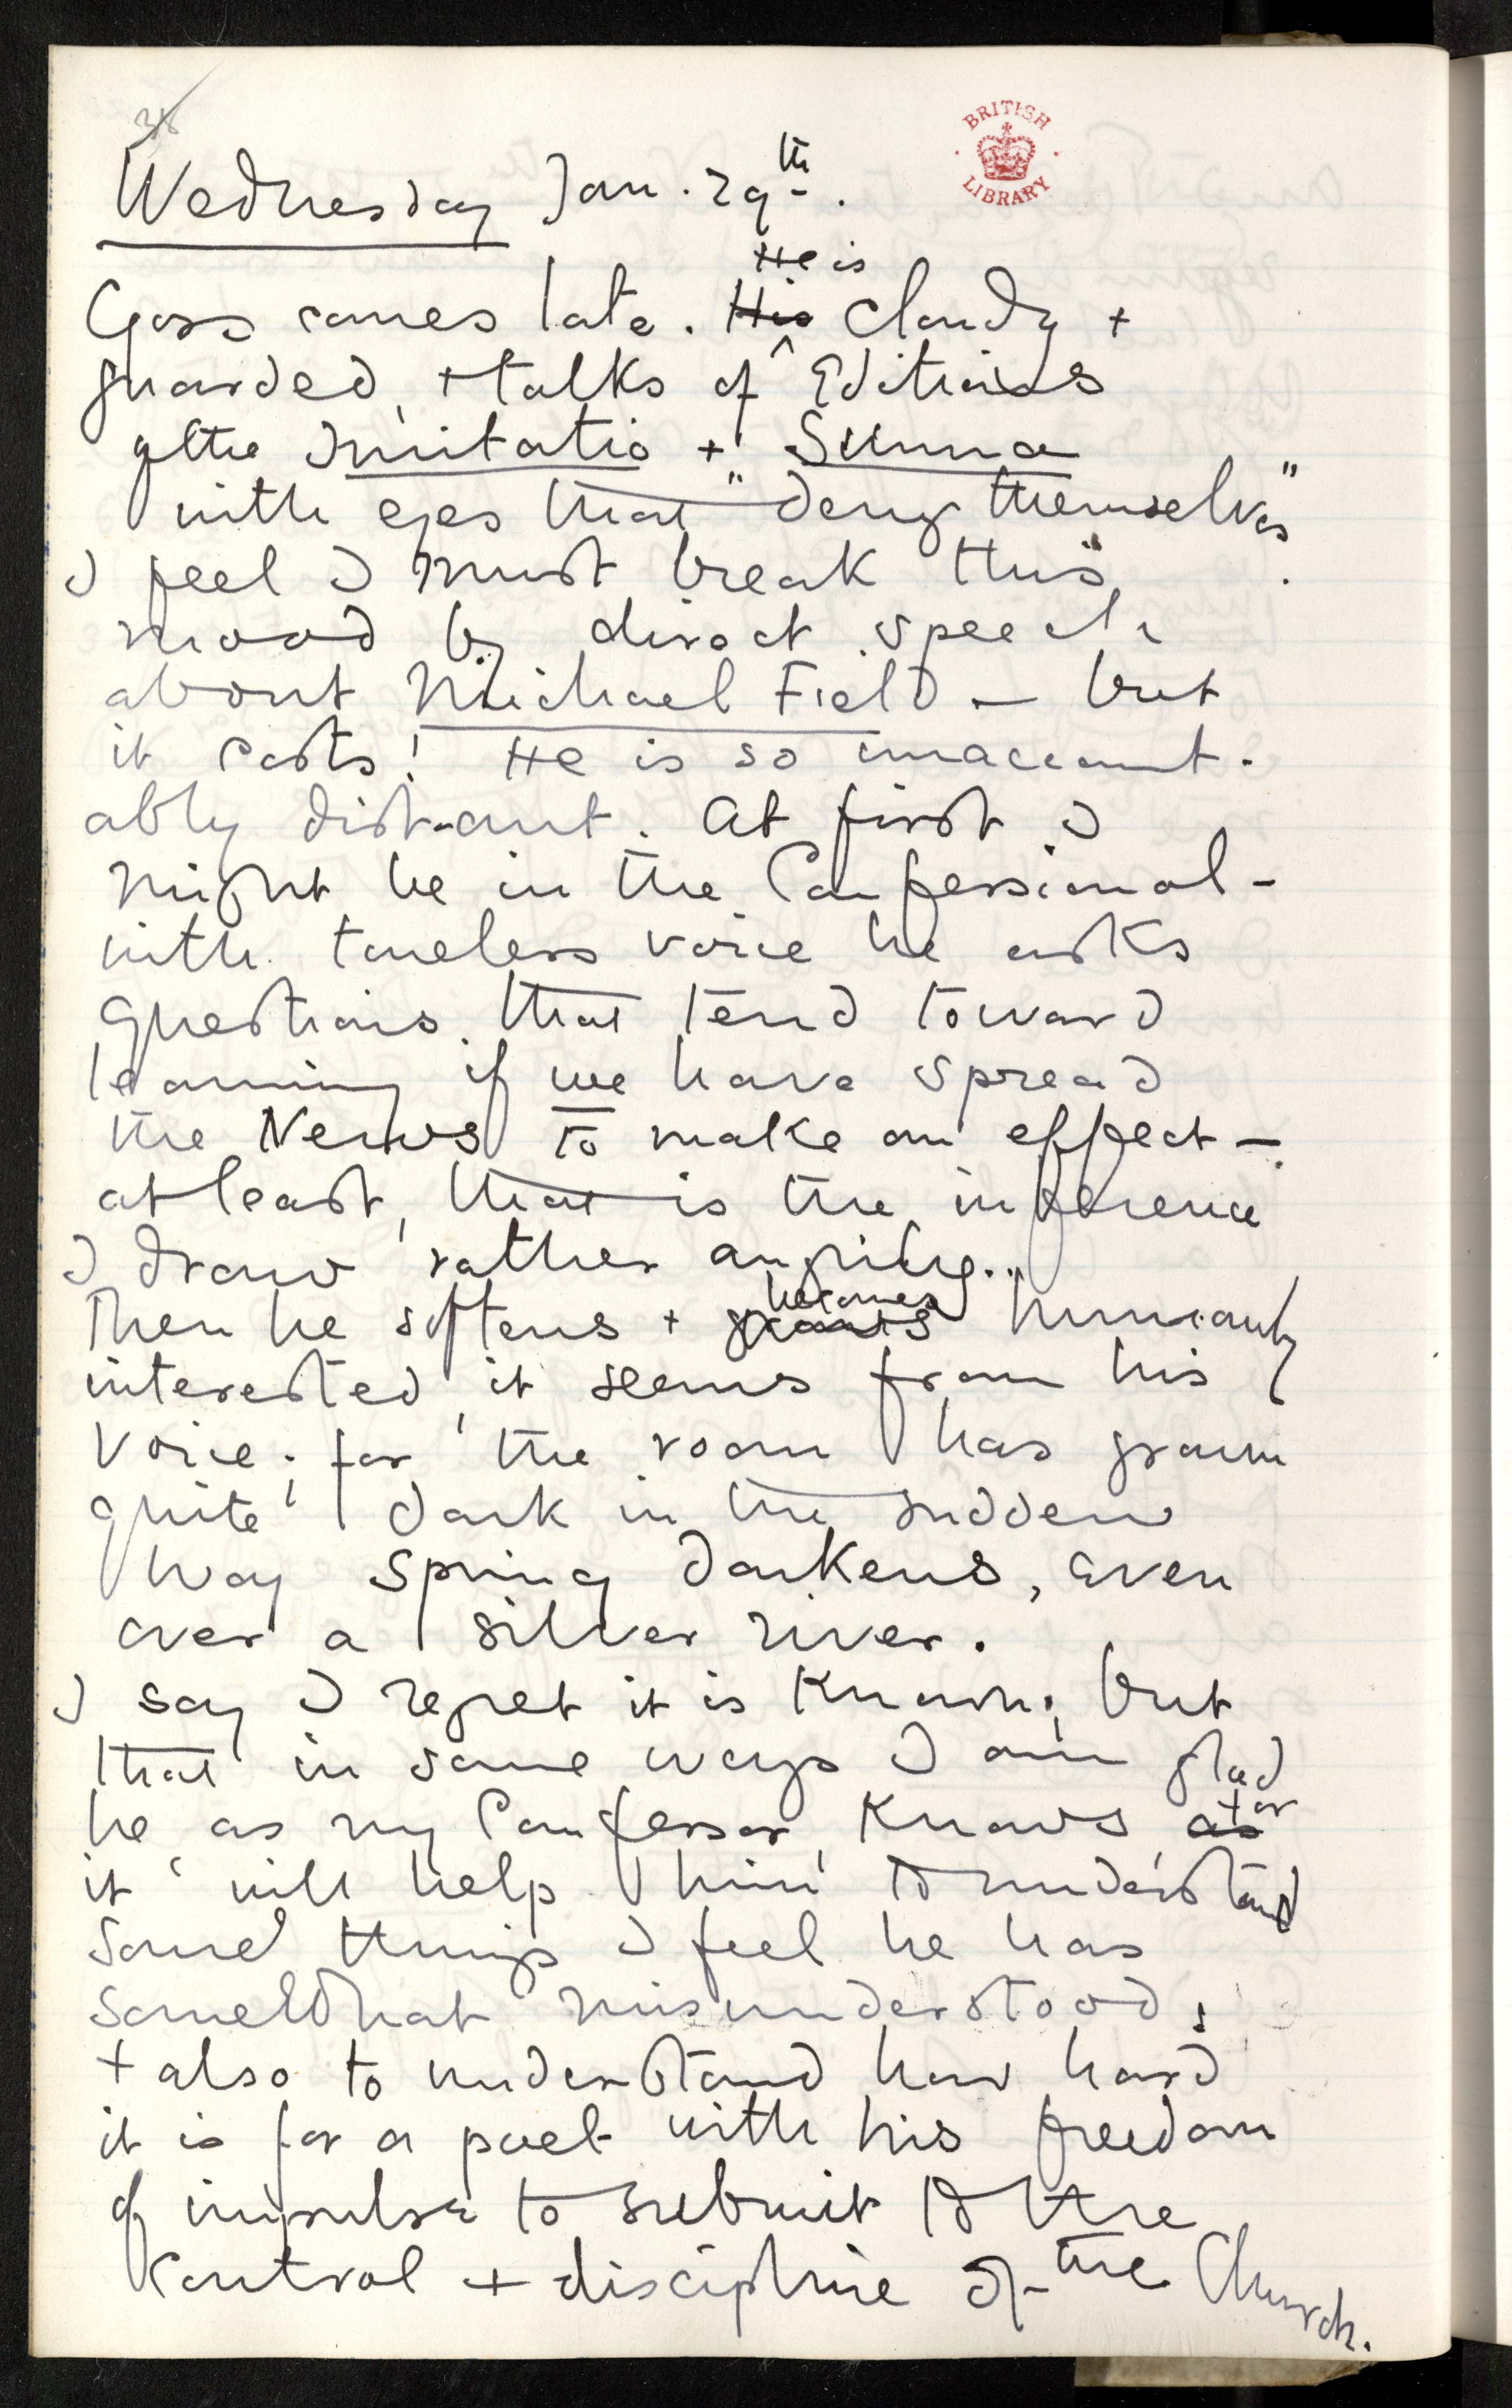 38
BRITISH
LIBRARY
Wednesday Jan. 29th.
He is
Goss comes late. His cloudy +
guarded, + talks of Editions
of the Imitatio + Summa
with eyes that "deny themselves"
I feel I must break this
mood by direct speech
about Michael Field — but
it costs! He is so unaccount-
ably distant. At first I
might be in the Confessional -
with toneless voice he asks
questions that tend toward
learning if we have spread
the News to make an effect —
at least, that is the inference
I draw rather angrily..
becomes
Then he softens + humanly
interested, it seems from his
voice; for the room has grown
quite dark in the sudden
way Spring darkens, even
over a silver river.
I say I regret it is known; but
that in some ways I am glad
for
he, as my Confessor, knows, as
it will help him to understand
some things I feel he has
somewhat misunderstood;
+ also to understand how hard
it is for a poet with his freedom
of impulse to submit to the
control + discipline of the Church.